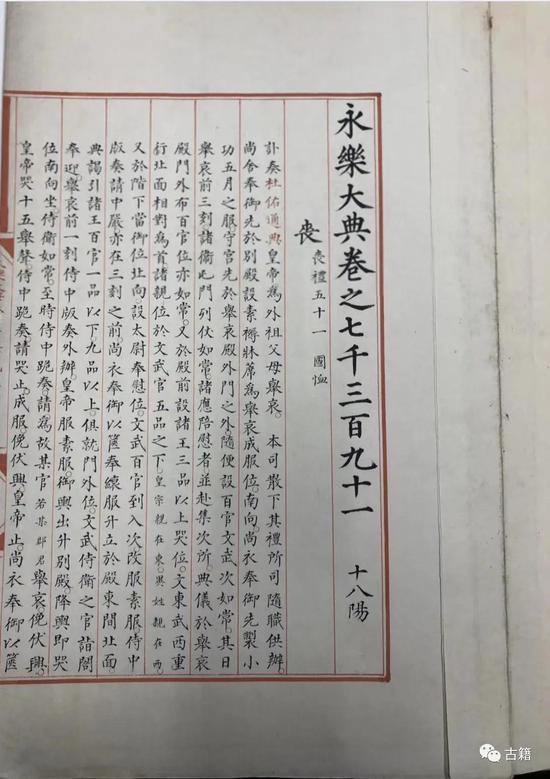 永樂大典卷之七千三百九十一 十八陽
喪 喪禮五十一 國恤
訃奏杜佑通典皇帝為外祖父母舉哀。本司散下其禮所司隨職供辦。
尚舍奉御先於別殿設素褥牀席為舉哀成服位。南向。尚衣奉御先製小
功五月之服。守宮先於舉哀殿外門之外隨便設百官文武次如常。其日
舉哀前三刻諸衛屯門列仗如常。諸應陪慰者並赴集次所。典儀於舉哀
殿門外布百官位亦如常。又於殿前設諸王三品以上哭位。文東武西重
行北面相對為首諸親位於文武官五品之下皇宗親在東。異姓親在西。
又於階下當御位北向設太尉奉慰位。文武百官到入次改服素服侍中
版奏請中嚴亦在三刻之前。尚衣奉御以篋奉縗服升立於殿東間北面。
典謁引諸王百官一品以下九品以上。俱就門外位。文武侍衛之官詣閤
奉迎舉哀前一刻侍中版奏外辦。皇帝服素服御輿出升別殿。降輿即哭
位南向坐。侍衛如常。至時侍中跪奏。請為故某官若某郡君舉哀。俛伏興。
皇帝哭。十五舉聲侍中跪奏。請哭止。成服。俛伏興皇帝止。尚衣奉御以篋
古籍